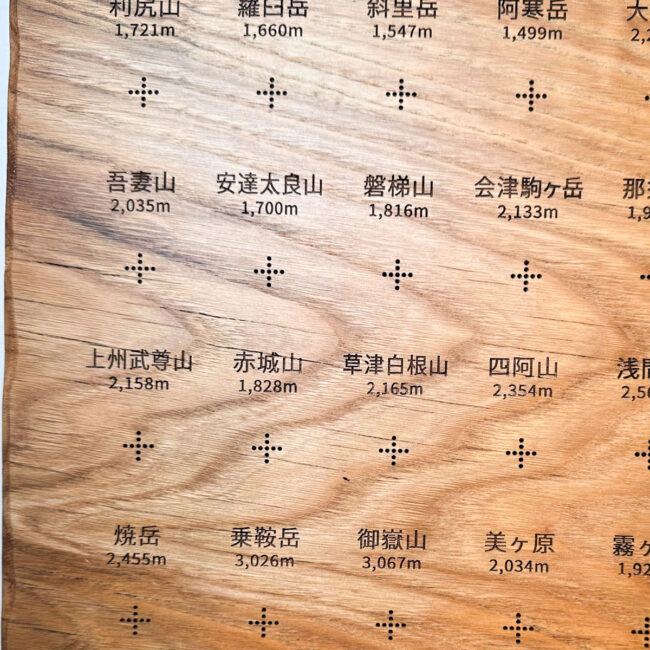 利尻山 羅臼岳 斜里岳 阿寒岳 大
1,721m 1,660m 1,547m 1,499m 2,2
吾妻山 安達太良山 磐梯山 会津駒ヶ岳 那
2,035m 1,700m 1,816m 2,133m 1,9
上州武尊山 赤城山 草津白根山 四阿山 浅間
2,158m 1,828m 2,165m 2,354m 2,56
焼岳 乗鞍岳 御嶽山 美ヶ原 霧ヶ
2,455m 3,026m 3,067m 2,034m 1,92